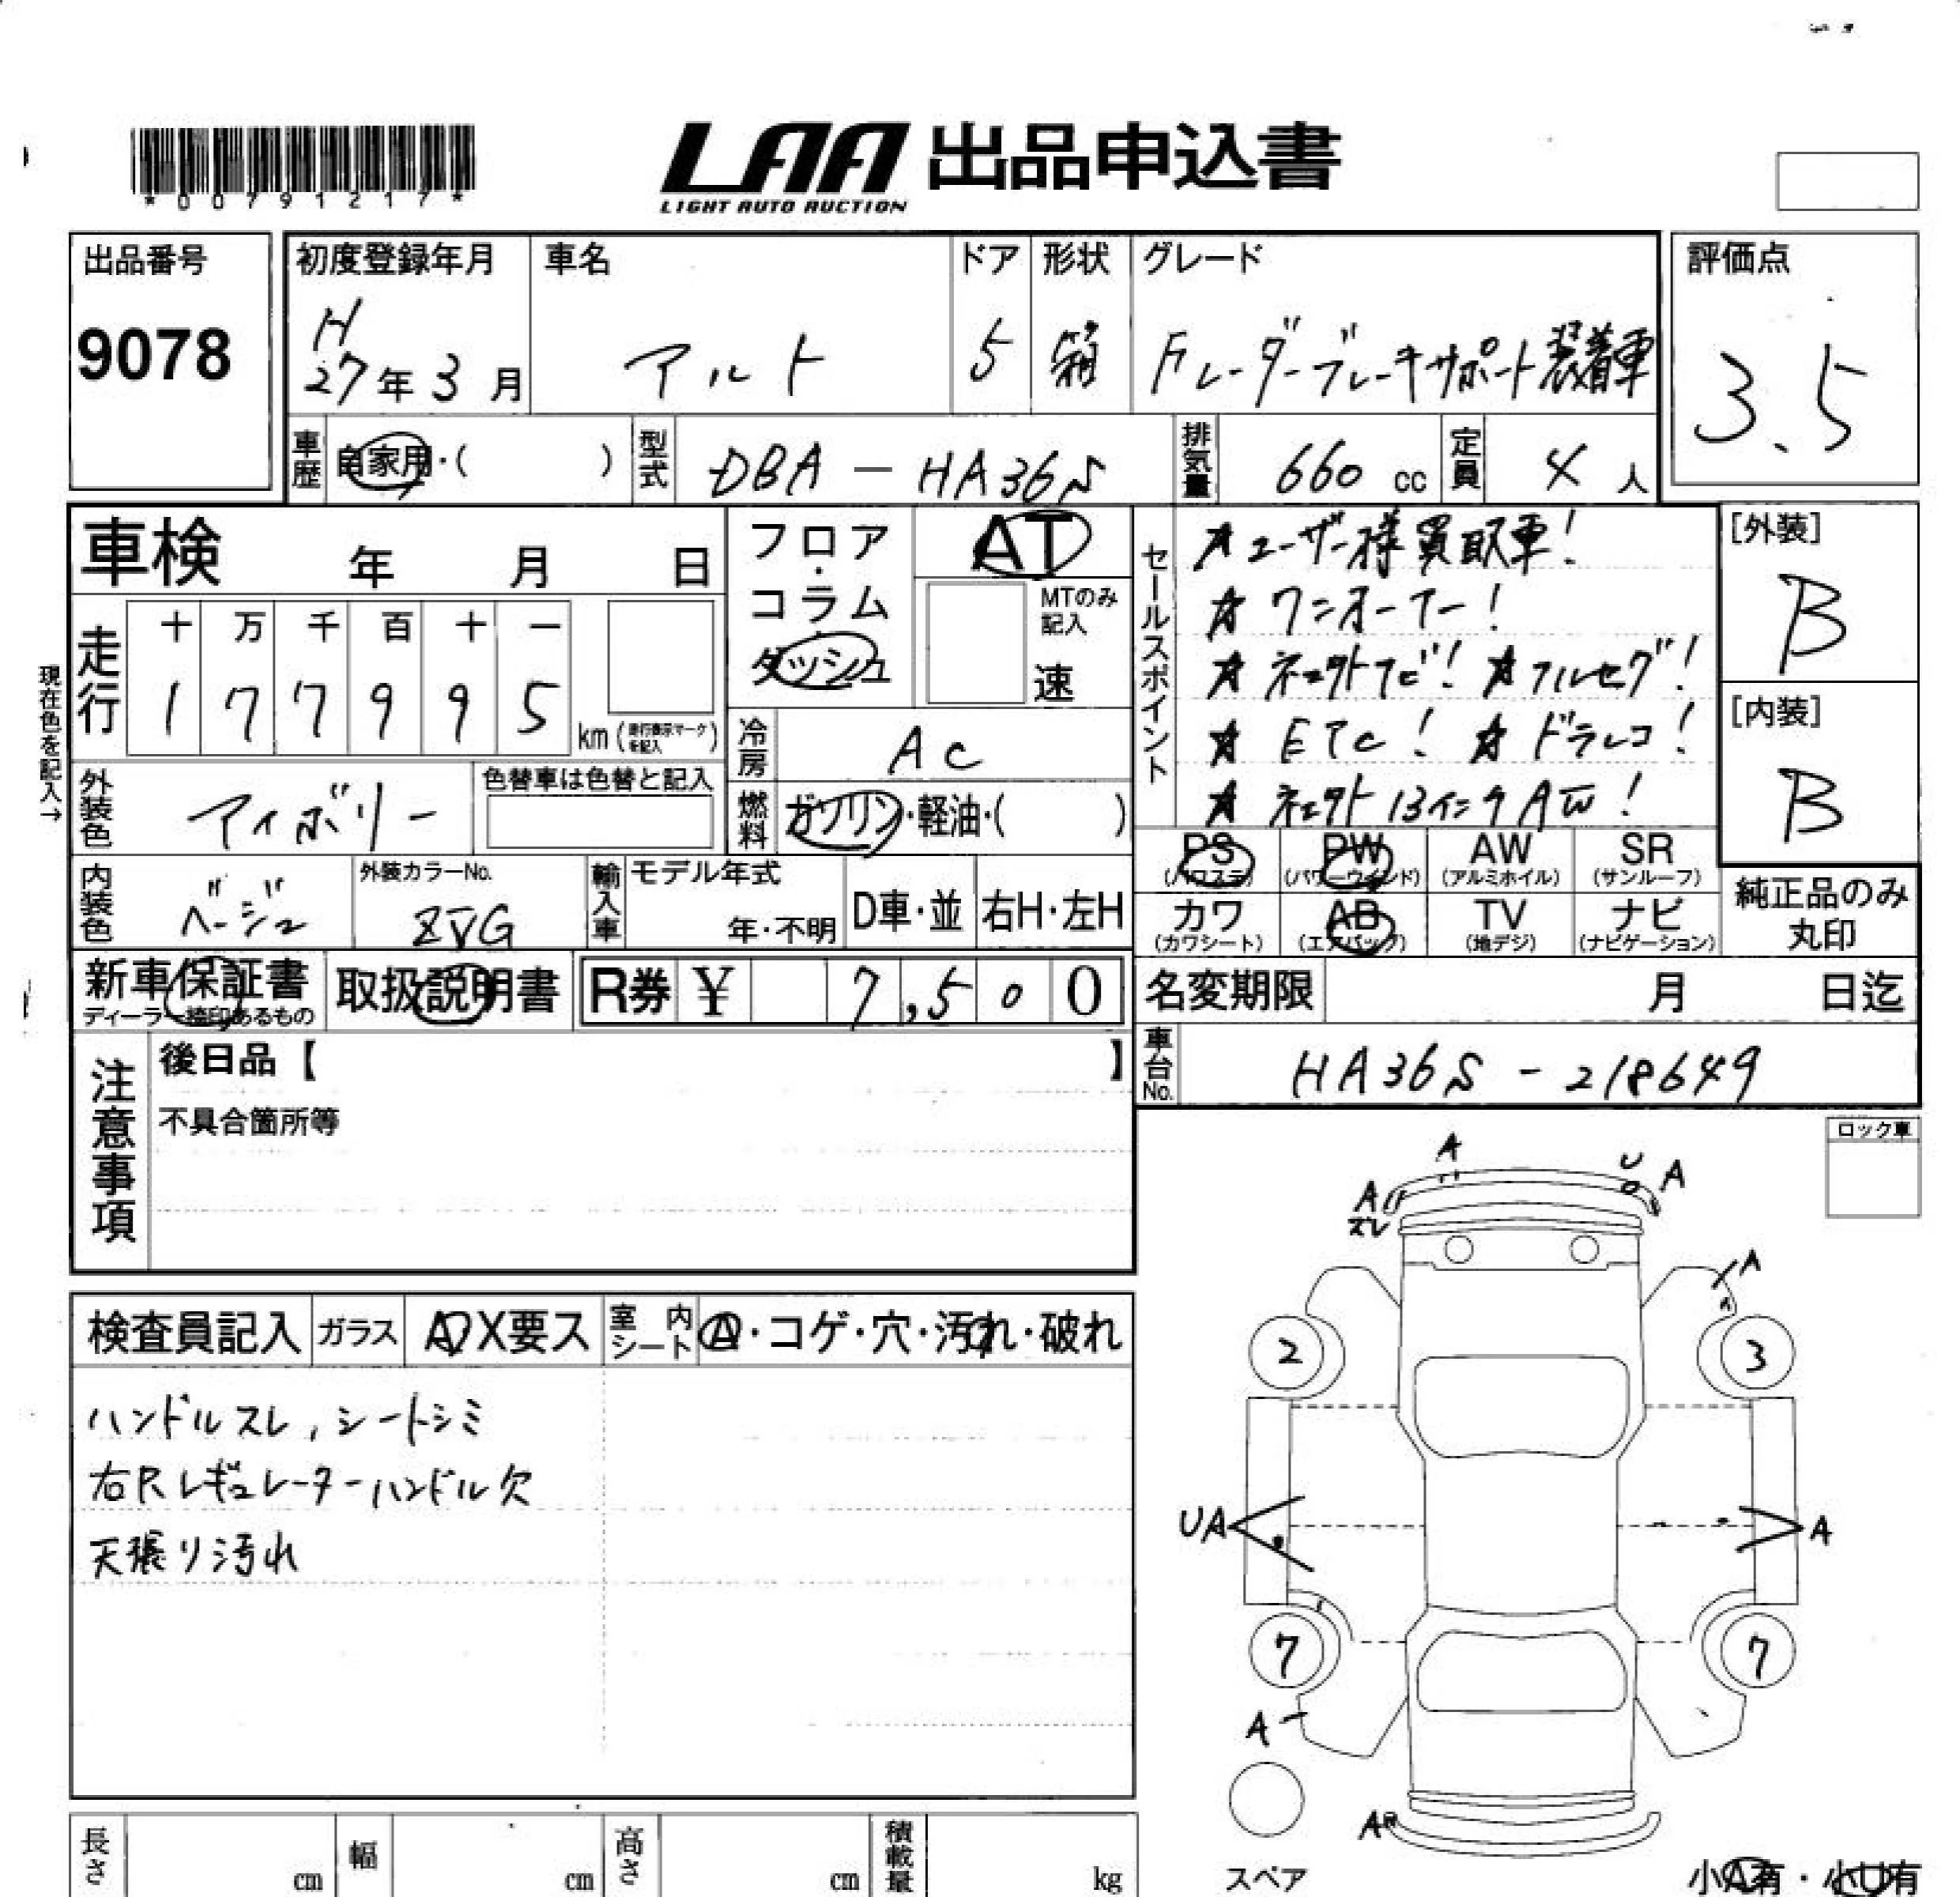 *00791217*
LAA 出品申込書
LIGHT AUTO AUCTION
出品番号
9078
初度登録年月
H
27年 3月
車名
アルト
ドア
5
形状
箱
グレード
Fレーダーブレーキサポート装着車
評価点
3.5
車歴
自家用・( )
型式
DBA - HA36S
排気量
660 cc
定員
4 人
車検 年 月 日
フロア・コラム
ダッシュ
AT
MTのみ記入
速
セールスポイント
★ユーザー様買取車!
★ワンオーナー!
★社外ナビ! ★フルセグ!
★ETC! ★ドラレコ!
★社外13インチAW!
[外装]
B
[内装]
B
現在色を記入→
走行
十 万 千 百 十 一
1 7 7 9 9 5
km (走行表示マークを記入)
冷房
AC
外装色
アイボリー
色替車は色替と記入
燃料
ガソリン・軽油・( )
PS (パワステ)
PW (パワーウィンド)
AW (アルミホイル)
SR (サンルーフ)
カワ (カワシート)
AB (エアバッグ)
TV (地デジ)
ナビ (ナビゲーション)
純正品のみ丸印
内装色
ベージュ
外装カラーNo.
ZVG
輸入車
モデル年式
年・不明
D車・並
右H・左H
新車保証書
ディーラー捺印あるもの
取扱説明書
R券 ¥ 7,500
名変期限 月 日迄
車台No.
HA36S - 218649
注意事項
後日品【 】
不具合箇所等
ロック車
検査員記入
ガラス
A X要ス
室内シート
A・コゲ・穴・汚れ・破れ
ハンドルスレ,シートシミ
右Rレギュレーターハンドル欠
天張り汚れ
A
U
A
A
ズレ
A
2
3
UA
A
7
7
A
A
スペア
小A有・小U有
長さ cm
幅 cm
高さ cm
積載量 kg